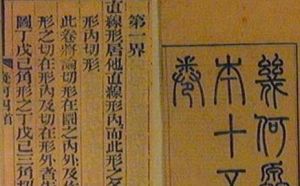 幾何原
本十五
卷
第一界
直線形居他直線形內而此形之
形內切形
此卷將論切形在圜之內外及
形之切在形內及切在形外者
圖丁戊己角形之丁戊己三角切
幾何四首